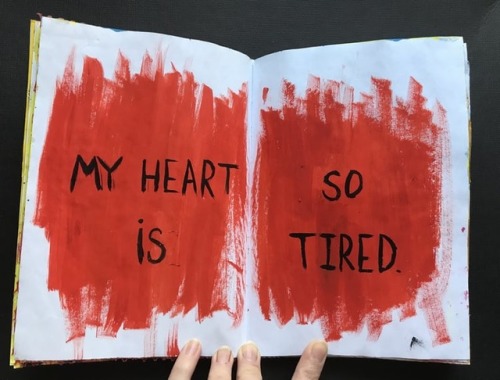 MY HEART
is
SO
TIRED.